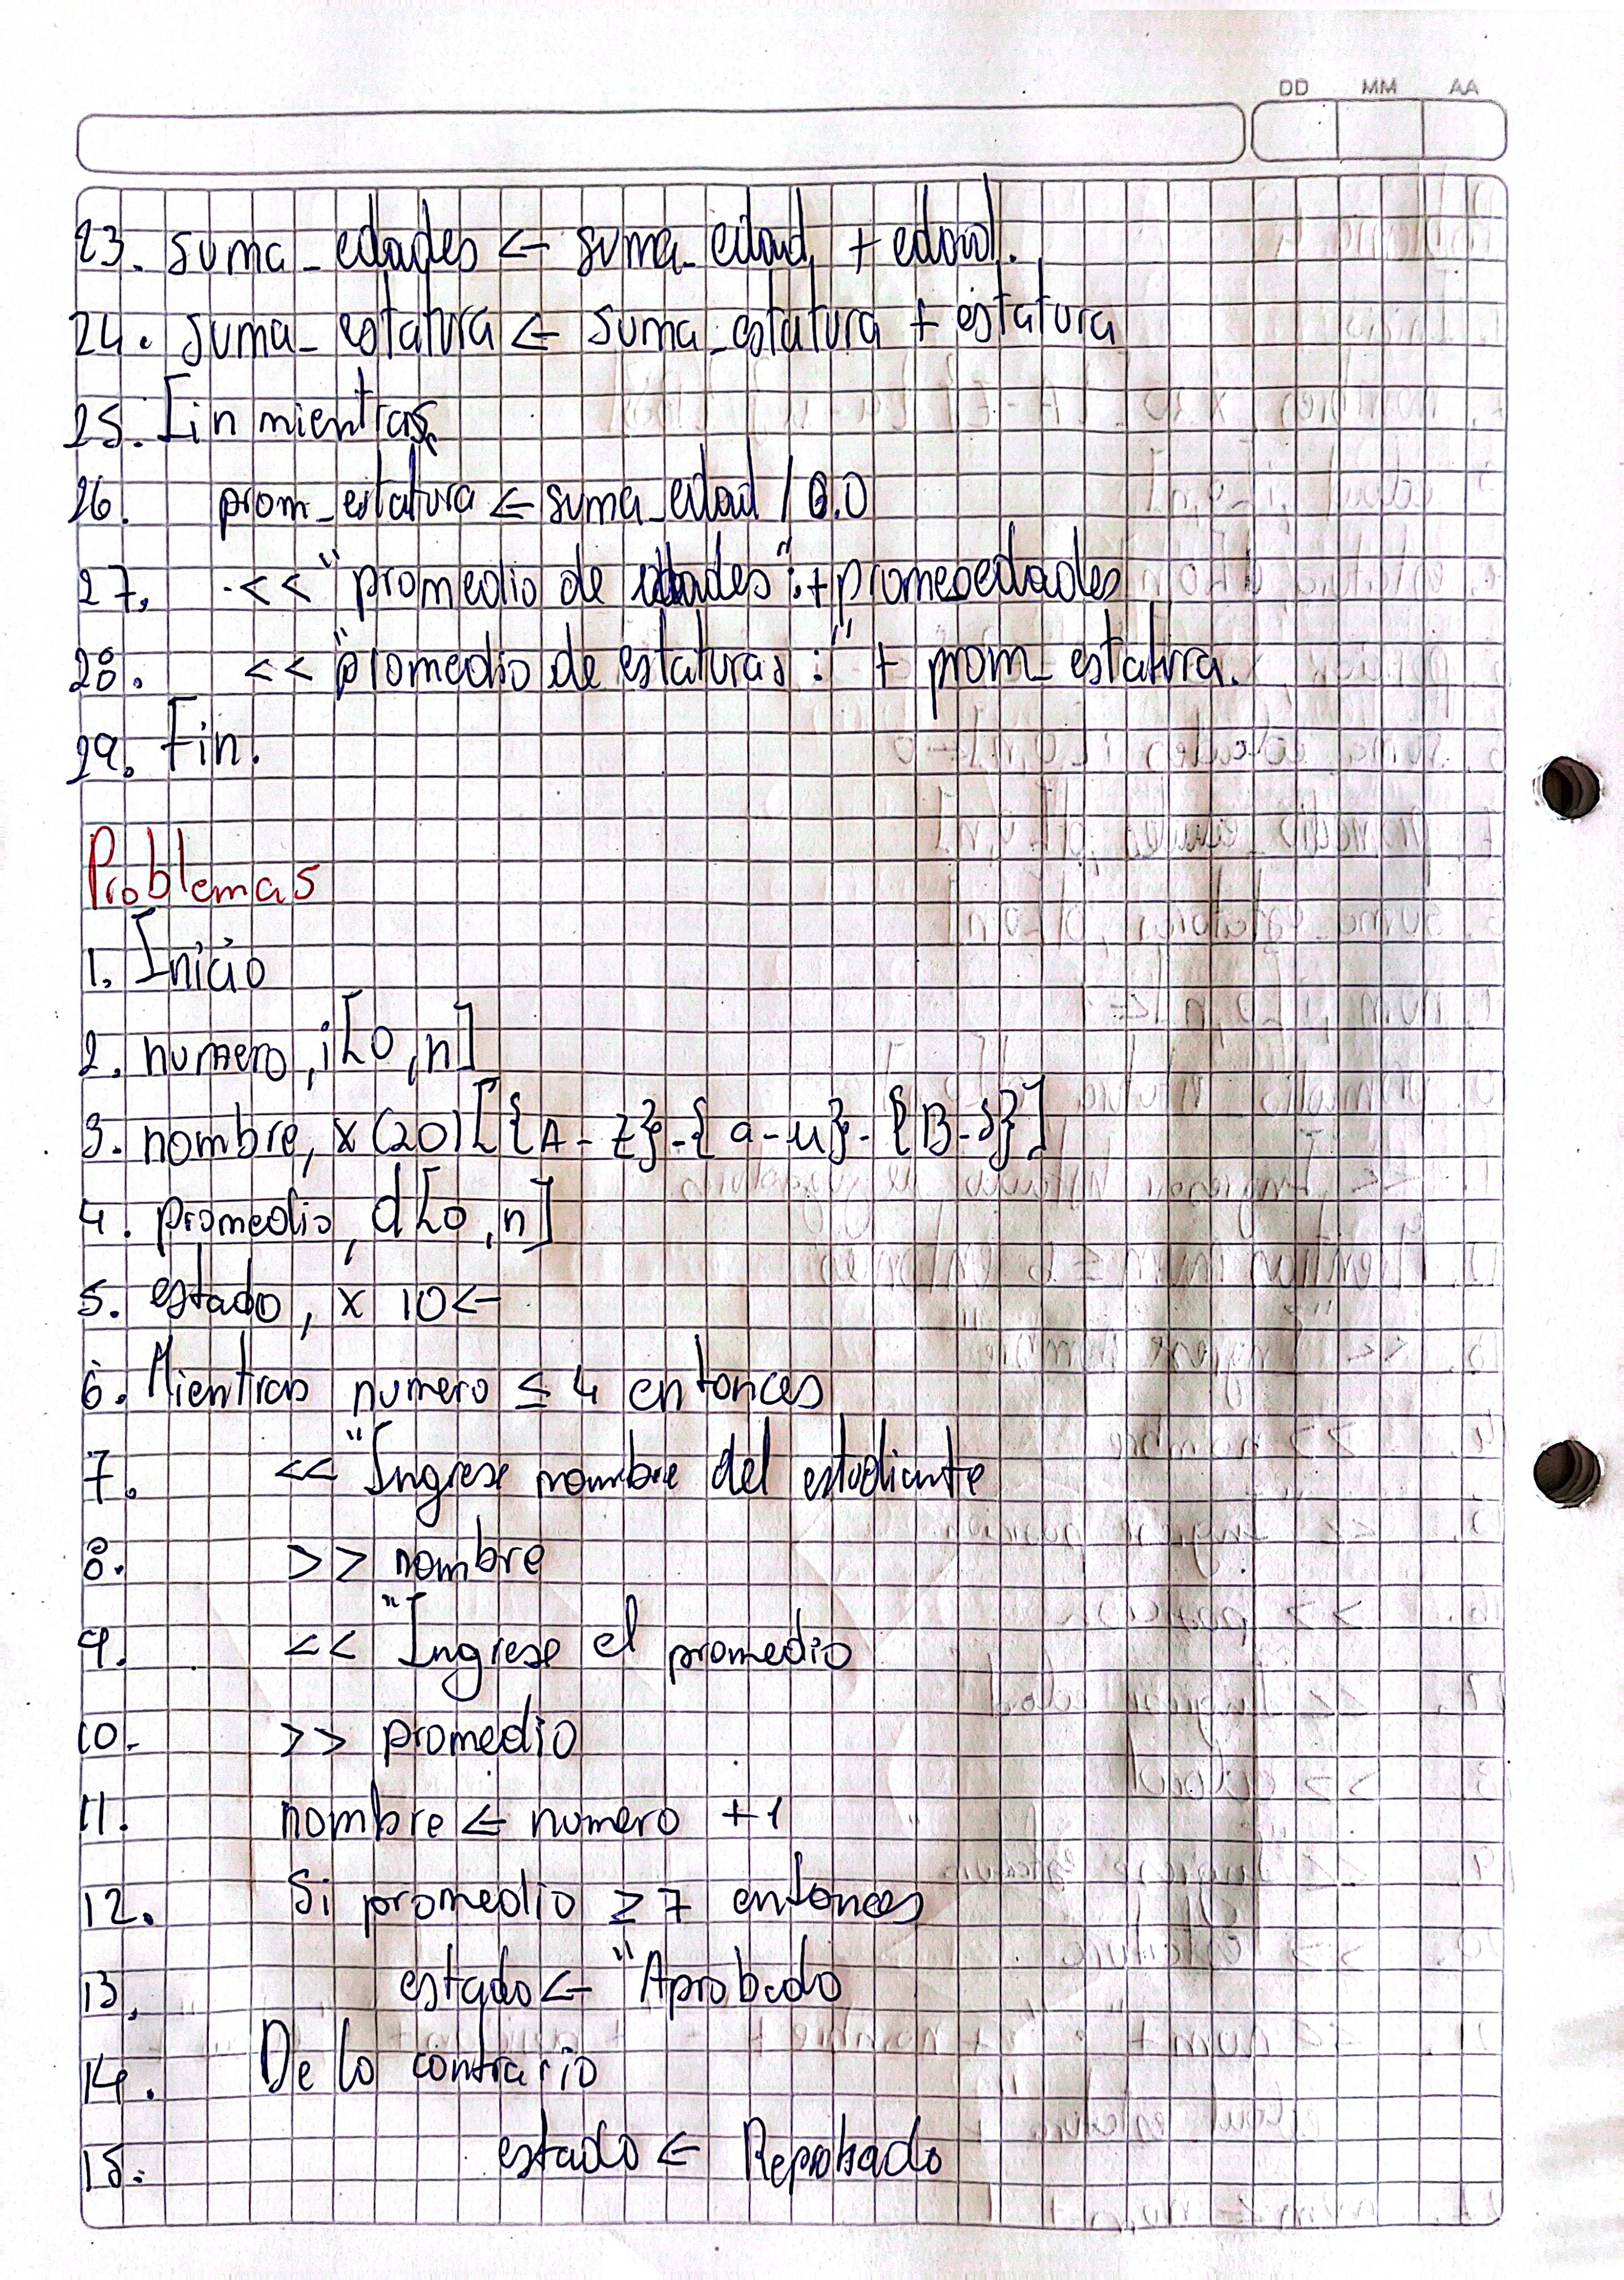 DD MM AA
23. suma_edades ← suma_edad + edad.
24. suma_estatura ← suma_estatura + estatura
25. Fin mientras
26. prom_estatura ← suma_edad / 6.0
27. << "promedio de edades": + promeoedades
28. << "promedio de estaturas:" + prom_estatura.
29. Fin.
Problemas
1. Inicio
2. numero, i [0, n]
3. nombre, x (20) [{A-Z}-{a-u}-{B-}]
4. promedio, d [0, n]
5. estado, x 10 ←
6. Mientras numero ≤ 4 entonces
7. << "Ingrese nombre del estudiante
8. >> nombre
9. << "Ingrese el promedio
10. >> promedio
11. nombre ← numero +1
12. Si promedio ≥ 7 entonces
13. estado ← "Aprobado
14. De lo contrario
15. estado ← Reprobado